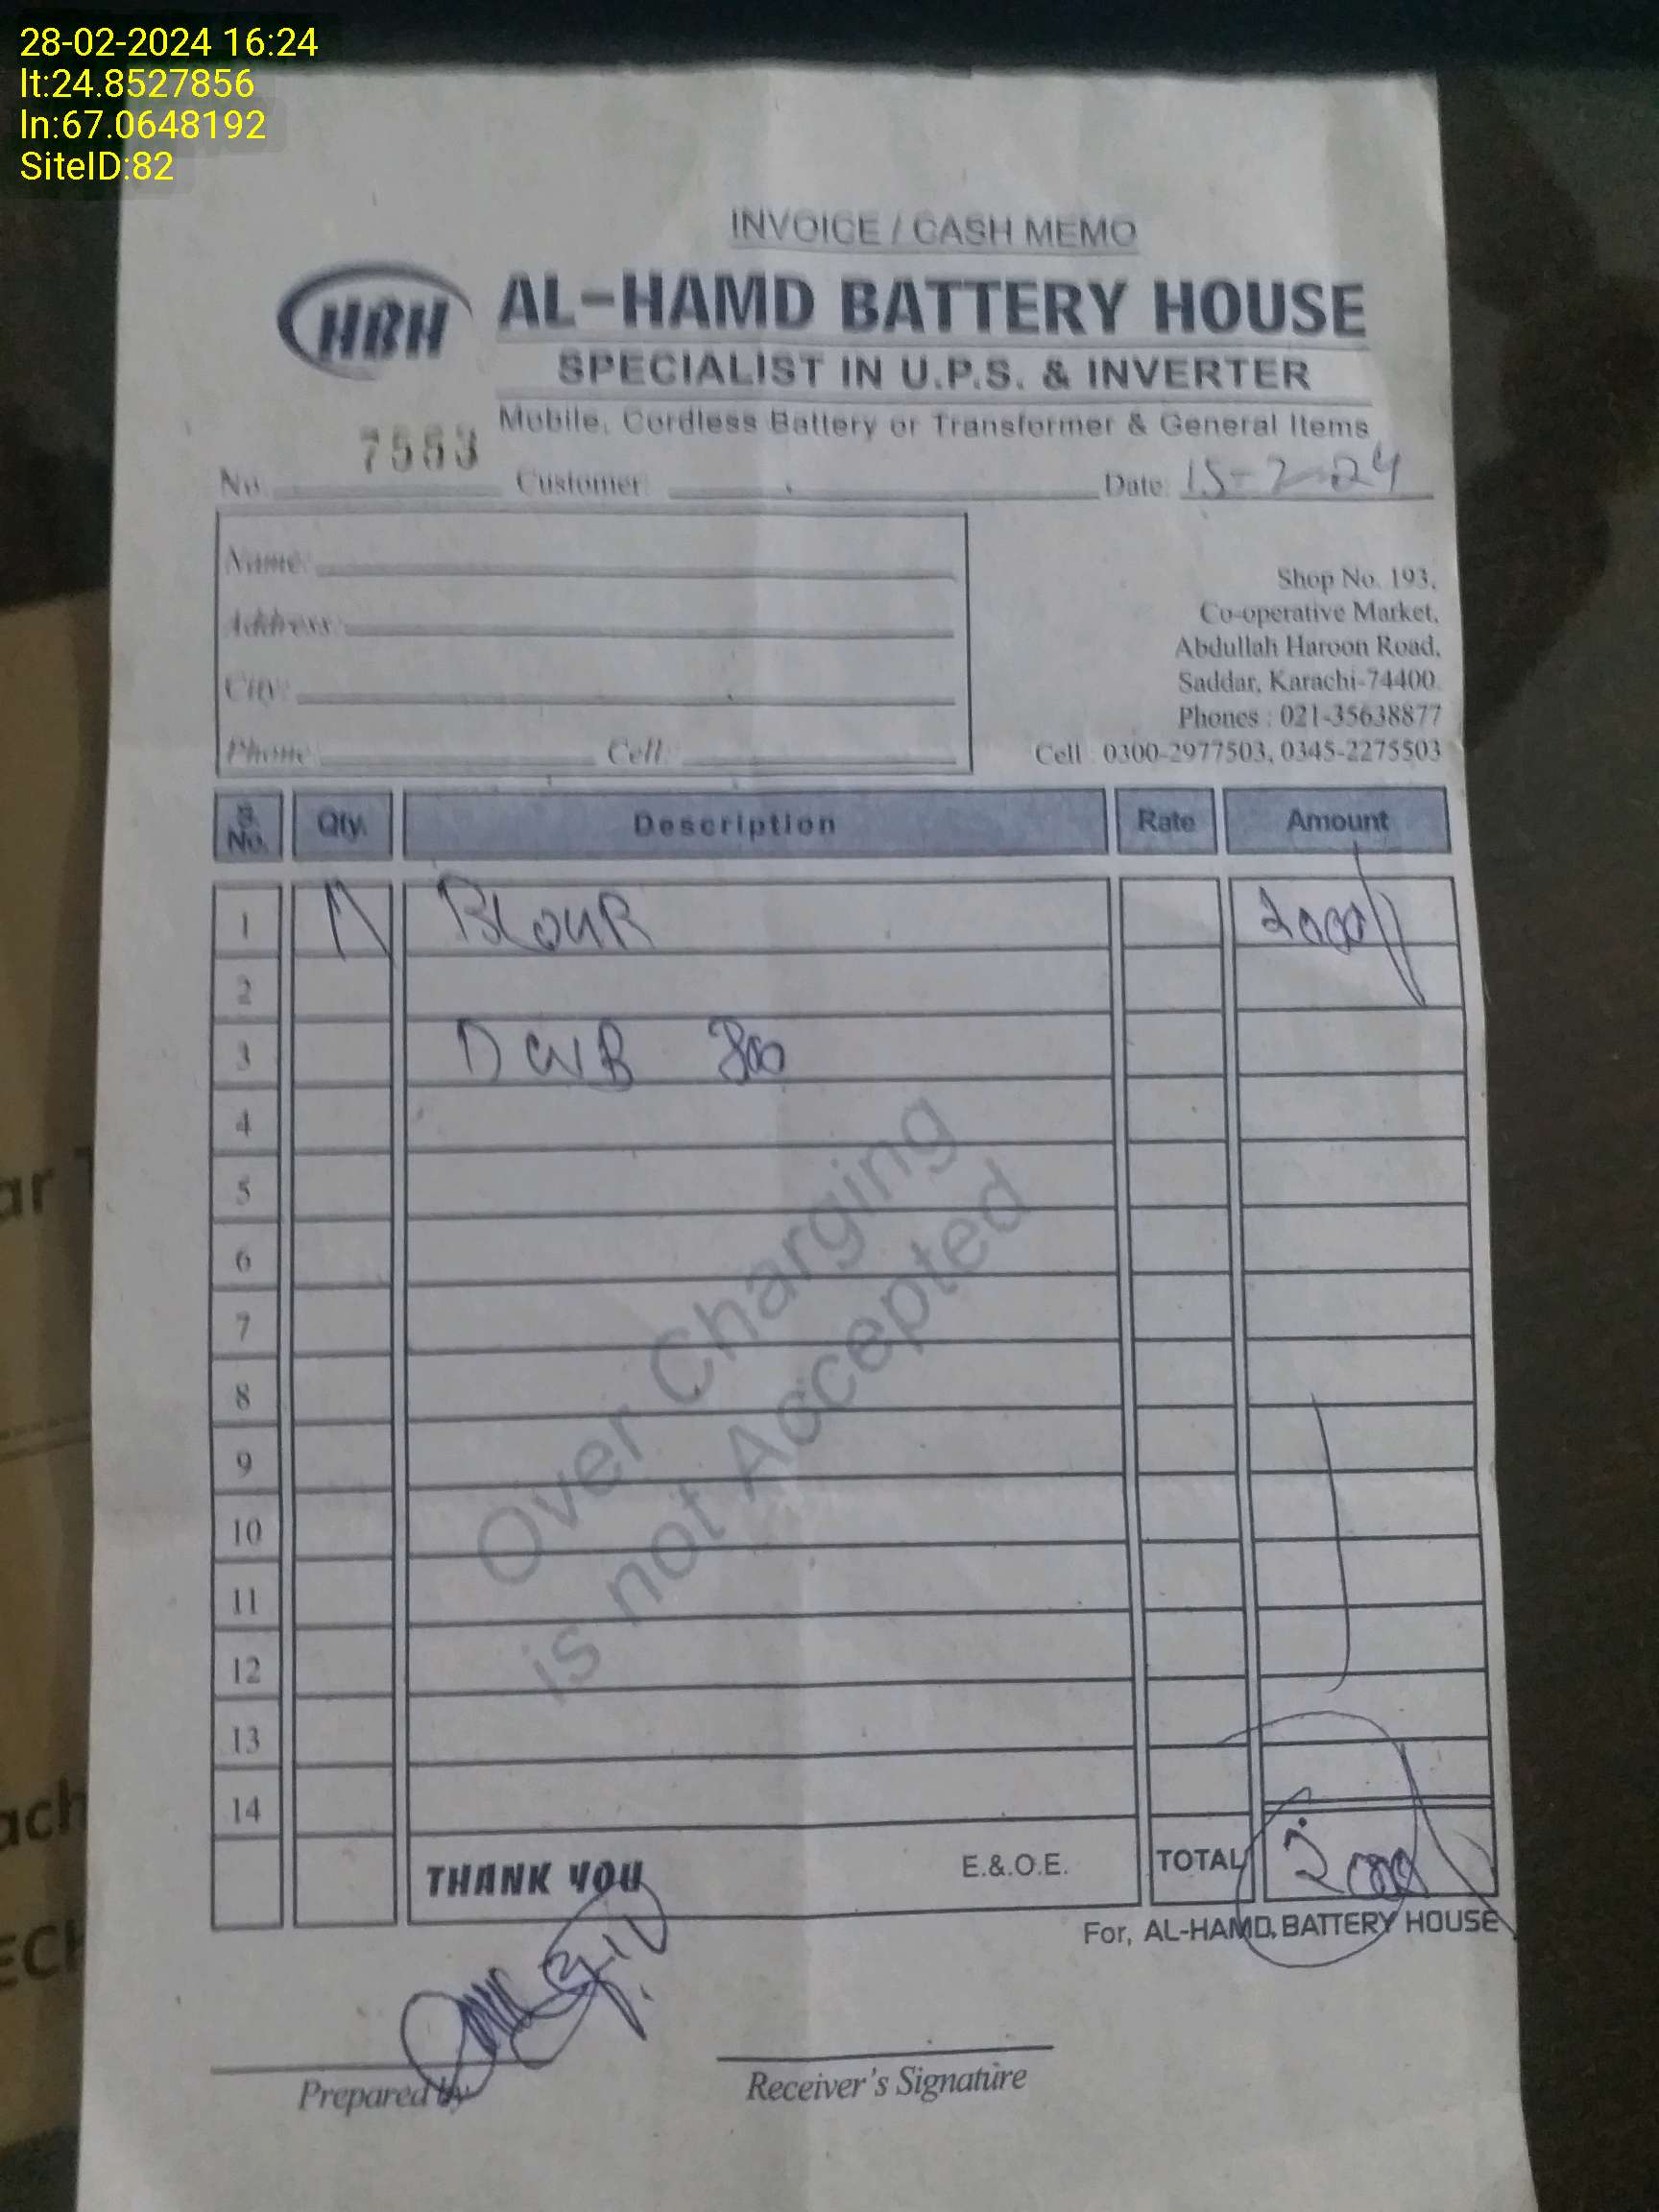 28-02-2024 16:24
lt:24.8527856
ln:67.0648192
SiteID:82
INVOICE / CASH MEMO
HBH AL-HAMD BATTERY HOUSE
SPECIALIST IN U.P.S. & INVERTER
Mobile, Cordless Battery or Transformer & General Items
No. 7553 Customer: Date: 15-2-24
Name:
Address:
City:
Phone: Cell:
Shop No. 193,
Co-operative Market,
Abdullah Haroon Road,
Saddar, Karachi-74400.
Phones : 021-35638877
Cell : 0300-2977503, 0345-2275503
S. No. Qty. Description Rate Amount
1 BLOUR 2000
2
3
4
5
6
7
8
9
10
11
12
13
14
Over Charging
is not Accepted
THANK YOU E.&.O.E. TOTAL 2000
For, AL-HAMD BATTERY HOUSE
Prepared by
Receiver's Signature
ar
ach
ECH